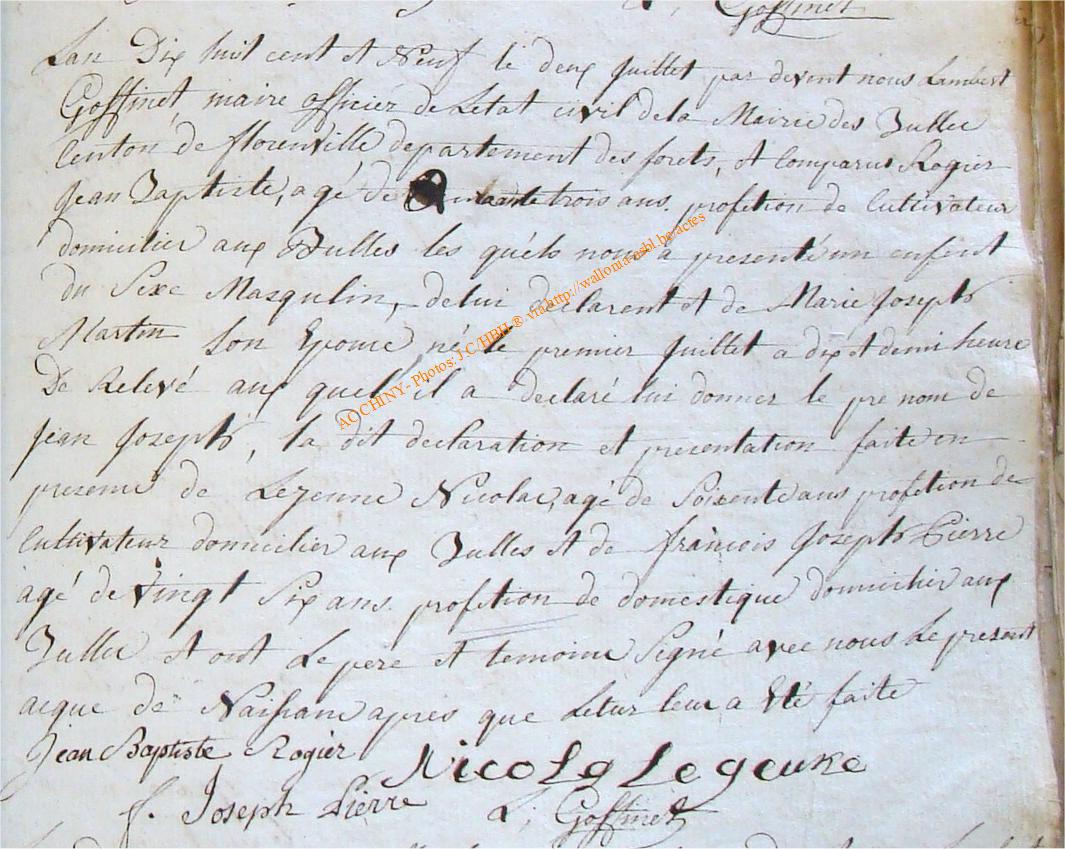 L; Goffinet
Lan Dix huit cent et Neuf le deux Juillet par devent nous Lambert
Goffinet, maire officier de Letat civil de la Mairie des Bulles
Centon de florenville departement des forets, et comparus Rogier
Jean Baptiste, agé de trois ans. profetion de Cultivateur
domicilier aux Bulles les quéls nous a presenté un enfent
du Sexe Masqulin, de lui declarent et de Marie Joseph
Martin Son Epouse, né le premier Juillet a dix et demi heure
De Relevé aux quel il a declaré lui donner le pre nom de
Jean Joseph, la dit declaration et presentation faite en
presence de Lejeune Nicolas, agé de Soixente ans profetion de
Cultivateur domicilier aux Bulles et de françois Joseph Pierre
agé de vingt Six ans. profetion de domestique domicilier aux
Bulles et ont Le pere et temoins Segné avec nous Le present
acque de Naissance apres que Letur leur a Eté faite
Jean Baptiste Rogier Nicolas Legeune
f. Joseph Pierre L; Goffinet
AC CHINY - Photos: J C/HBH ® via http://wallonia-asbl.be/actes